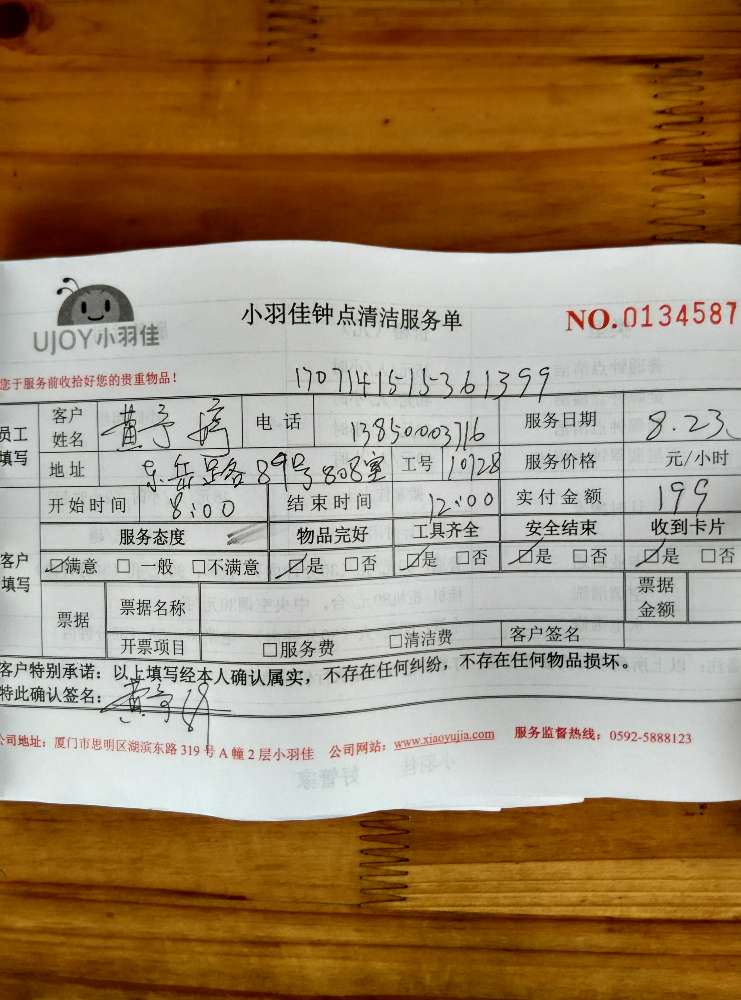 UJOY小羽佳
小羽佳钟点清洁服务单
NO.0134587
您于服务前收拾好您的贵重物品！
1707141515361399
员工填写 客户姓名 黄 电话 13850003716 服务日期 8.23
地址 东岳 89号808室 工号 10728 服务价格 元/小时
客户填写 开始时间 8:00 结束时间 12:00 实付金额 199
服务态度 物品完好 工具齐全 安全结束 收到卡片
☑满意 □一般 □不满意 ☑是 □否 ☑是 □否 ☑是 □否 ☑是 □否
票据 票据名称 票据金额
开票项目 □服务费 □清洁费 客户签名
客户特别承诺：以上填写经本人确认属实，不存在任何纠纷，不存在任何物品损坏。
特此确认签名：黄
公司地址：厦门市思明区湖滨东路 319 号 A 幢 2 层小羽佳 公司网站：www.xiaoyujia.com 服务监督热线：0592-5888123